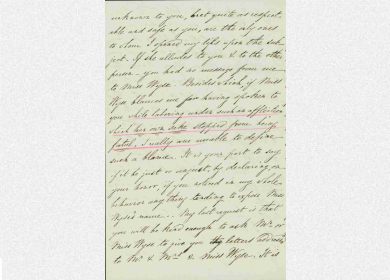 unknown to you, but quite as respect-
able and safe as you, are the only ones
to whom I opened my lips upon the sub-
ject. If she alludes to you & to the other
person - you had no message from me
to Miss Wyse. Besides which if Miss
Wyse blames me for having spoken to
you while laboring under such an affliction
which his own sake stopped from being
fatal, I really am unable to define
such a blame. It is your part to say
if it be just or unjust, by declaring on
your honor, if you noticed in my whole
behavior any thing tending to expose Miss
Wyse's name. - My last request is that
you will be kind enough to ask Mr. or
Miss Wyse to give you my letters addressed
to Mr. & Mrs. & Miss Wyse. It is